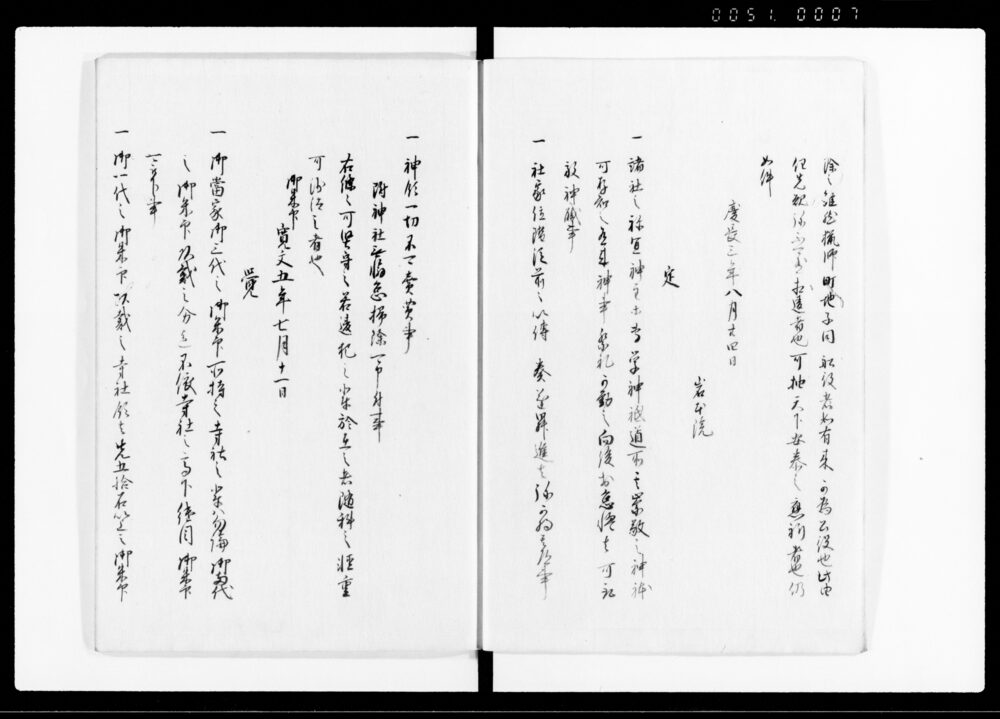 0051.0007
除之雖然猟師町地子同船役者如有来可為公役也此由
但先規弥不可有相違者也可抽天下安泰之懇祈者也仍
如件
慶長三年八月廿四日
岩本院
定
一 諸社之祢宜神主等専学神祇道所其崇敬之神体
可存知之有来神事祭礼可勤之向後於怠慢者可取
放神職事
一 社家位階従前之以伝奏遂昇進者弥可為其通事
一 神領一切不可売買事
附神社無懈怠掃除可申付事
右条々可堅守之若違犯之輩於有之者随科之軽重
可沙汰之者也
御朱印 寛文五年七月十一日
覚
一 御當家御三代之御朱印所持之寺社之輩勿論御當代
之御朱印頂戴之分者不依寺社之高下継目御朱印
可
一 御一代之御朱印頂戴之寺社領者先五拾石以上之御朱印